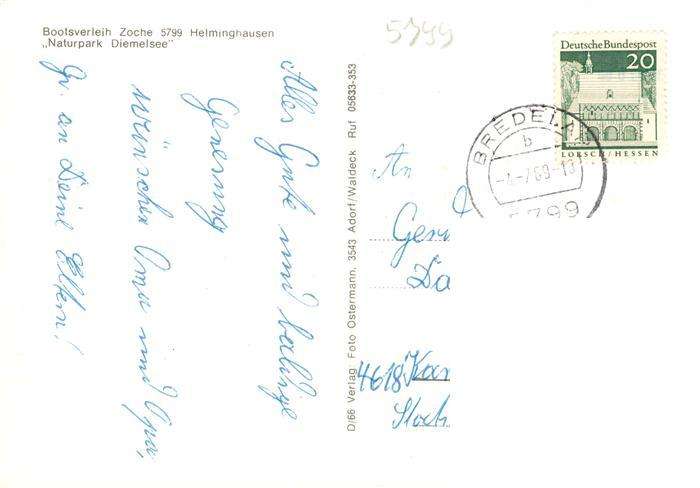 Bootsverleih Zoche 5799 Helminghausen
„Naturpark Diemelsee"
5799
Alles Gute und baldige
Genesung
wünschen Oma und Opa,
Gr. an Deine Eltern!
D/66 Verlag Foto Ostermann, 3543 Adorf/Waldeck Ruf 05633-353
An
4618
Deutsche Bundespost
20
LORSCH/HESSEN
BREDELA
b
5799